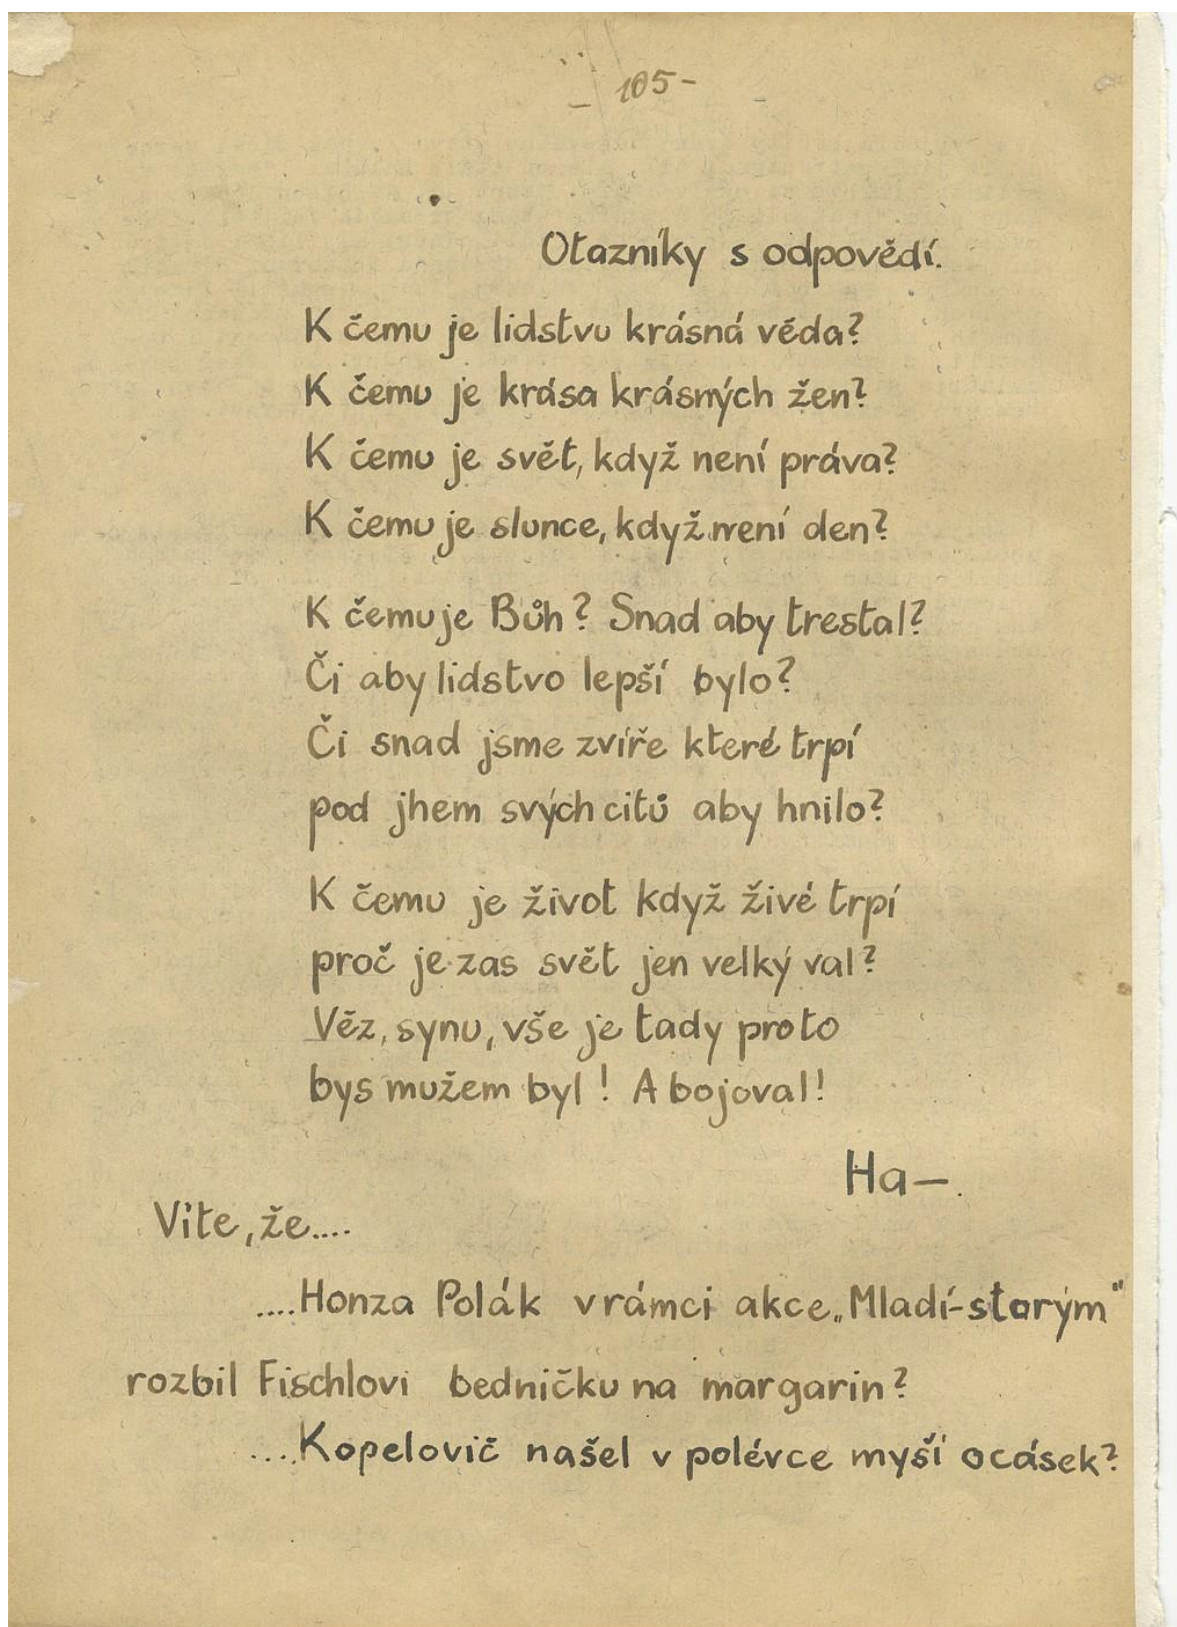 - 105 -
Otazníky s odpovědí.
K čemu je lidstvu krásná věda?
K čemu je krása krásných žen?
K čemu je svět, když není práva?
K čemu je slunce, když není den?
K čemu je Bůh? Snad aby trestal?
Či aby lidstvo lepší bylo?
Či snad jsme zvíře které trpí
pod jhem svých citů aby hnilo?
K čemu je život když živé trpí
proč je zas svět jen velký val?
Věz, synu, vše je tady proto
bys mužem byl! A bojoval!
Ha—.
Víte, že....
....Honza Polák v rámci akce „Mladí-starým"
rozbil Fischlovi bedničku na margarin?
....Kopelovič našel v polévce myší ocásek?